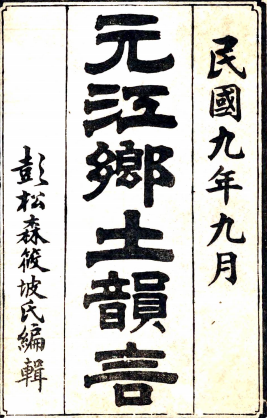 民國九年九月
元江鄉土韻言
彭松森筱坡氏編輯